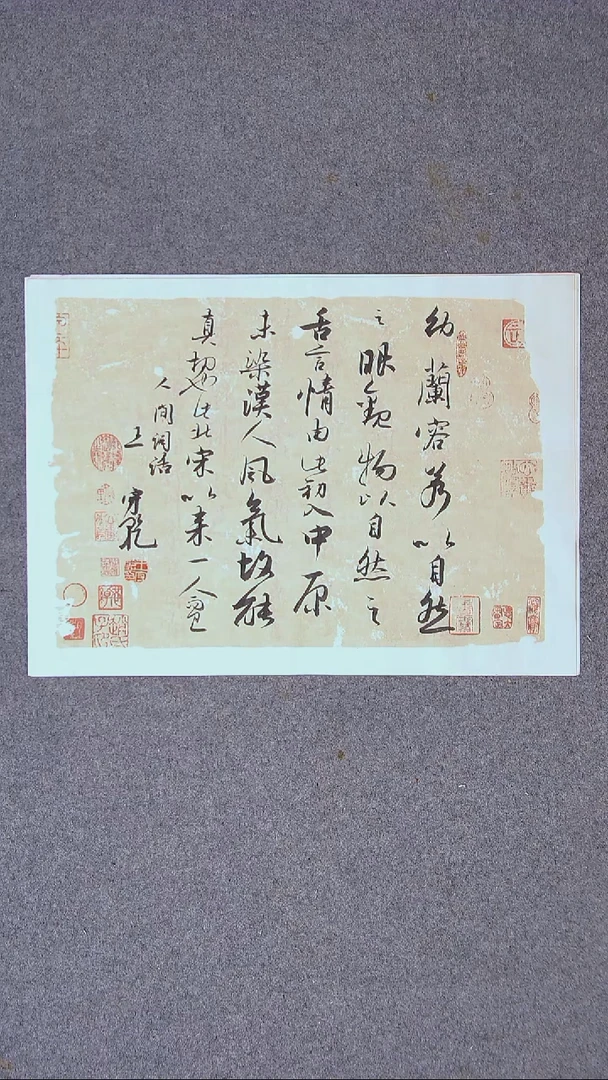 納蘭容若以自然
之眼觀物以自然之
舌言情由此初入中原
未染漢人風氣故能
真切如此北宋以来一人而已
人間詞話
王
守乾